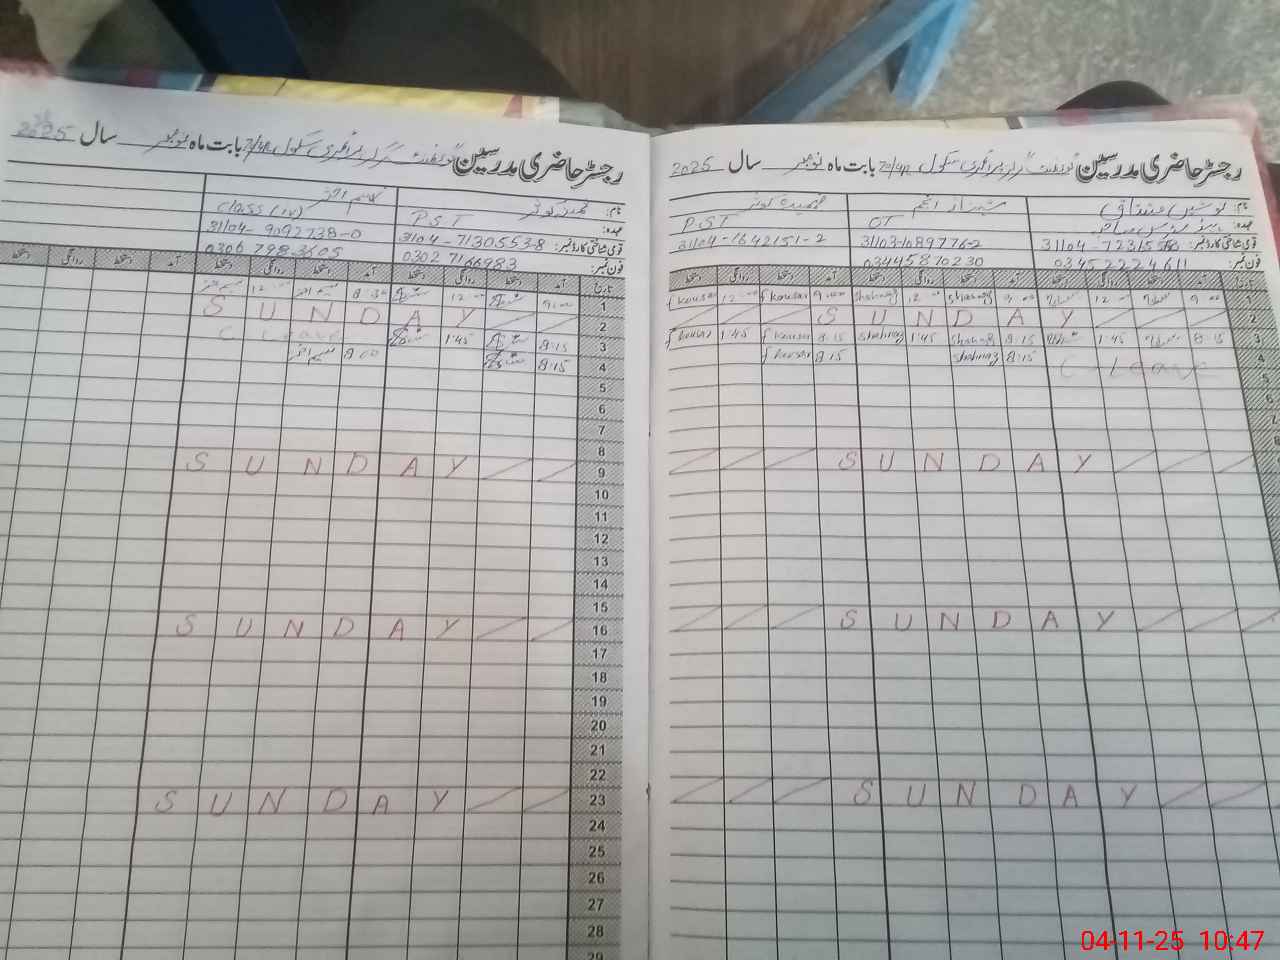 رجسٹر حاضری مدرسین گورنمنٹ گرلز پرائمری سکول 72/4R بابت ماہ نومبر سال 2025
نام: نوشین مشتاق شہناز انجم فہمیدہ کوثر
عہدہ: OT P.S.T
قومی شناختی کارڈ نمبر: 31104-7231550 31103-1089776-2 31104-1642151-2
فون نمبر: 03452224611 03445870230
تاریخ آمد دستخط روانگی دستخط آمد دستخط روانگی دستخط آمد دستخط روانگی دستخط
1 9:00 12:00 9:00 shahnaz 12:00 shahnaz 9:00 f kousar 12:00 f kousar
2 S U N D A Y
3 8:15 1:45 8:15 shahnaz 1:45 shahnaz 8:15 f kousar 1:45 f kousar
4 C-Leave 8:15 shahnaz 8:15 f kousar
5
S U N D A Y
S U N D A Y
S U N D A Y
رجسٹر حاضری مدرسین گورنمنٹ گرلز پرائمری سکول 72/4R بابت ماہ نومبر سال 2025
نام: کوثر
عہدہ: P.S.T Class (iv)
قومی شناختی کارڈ نمبر: 31104-7130553-8 31104-9092738-0
فون نمبر: 03027166983 03067983605
تاریخ آمد دستخط روانگی دستخط آمد دستخط روانگی دستخط آمد دستخط روانگی دستخط
1 9:00 12:00 8:30 12:00
2 S U N D A Y
3 8:15 1:45 C Leave
4 8:15 8:00
5
6
7
8
9 S U N D A Y
10
11
12
13
14
15
16 S U N D A Y
17
18
19
20
21
22
23 S U N D A Y
24
25
26
27
28
29
04-11-25 10:47